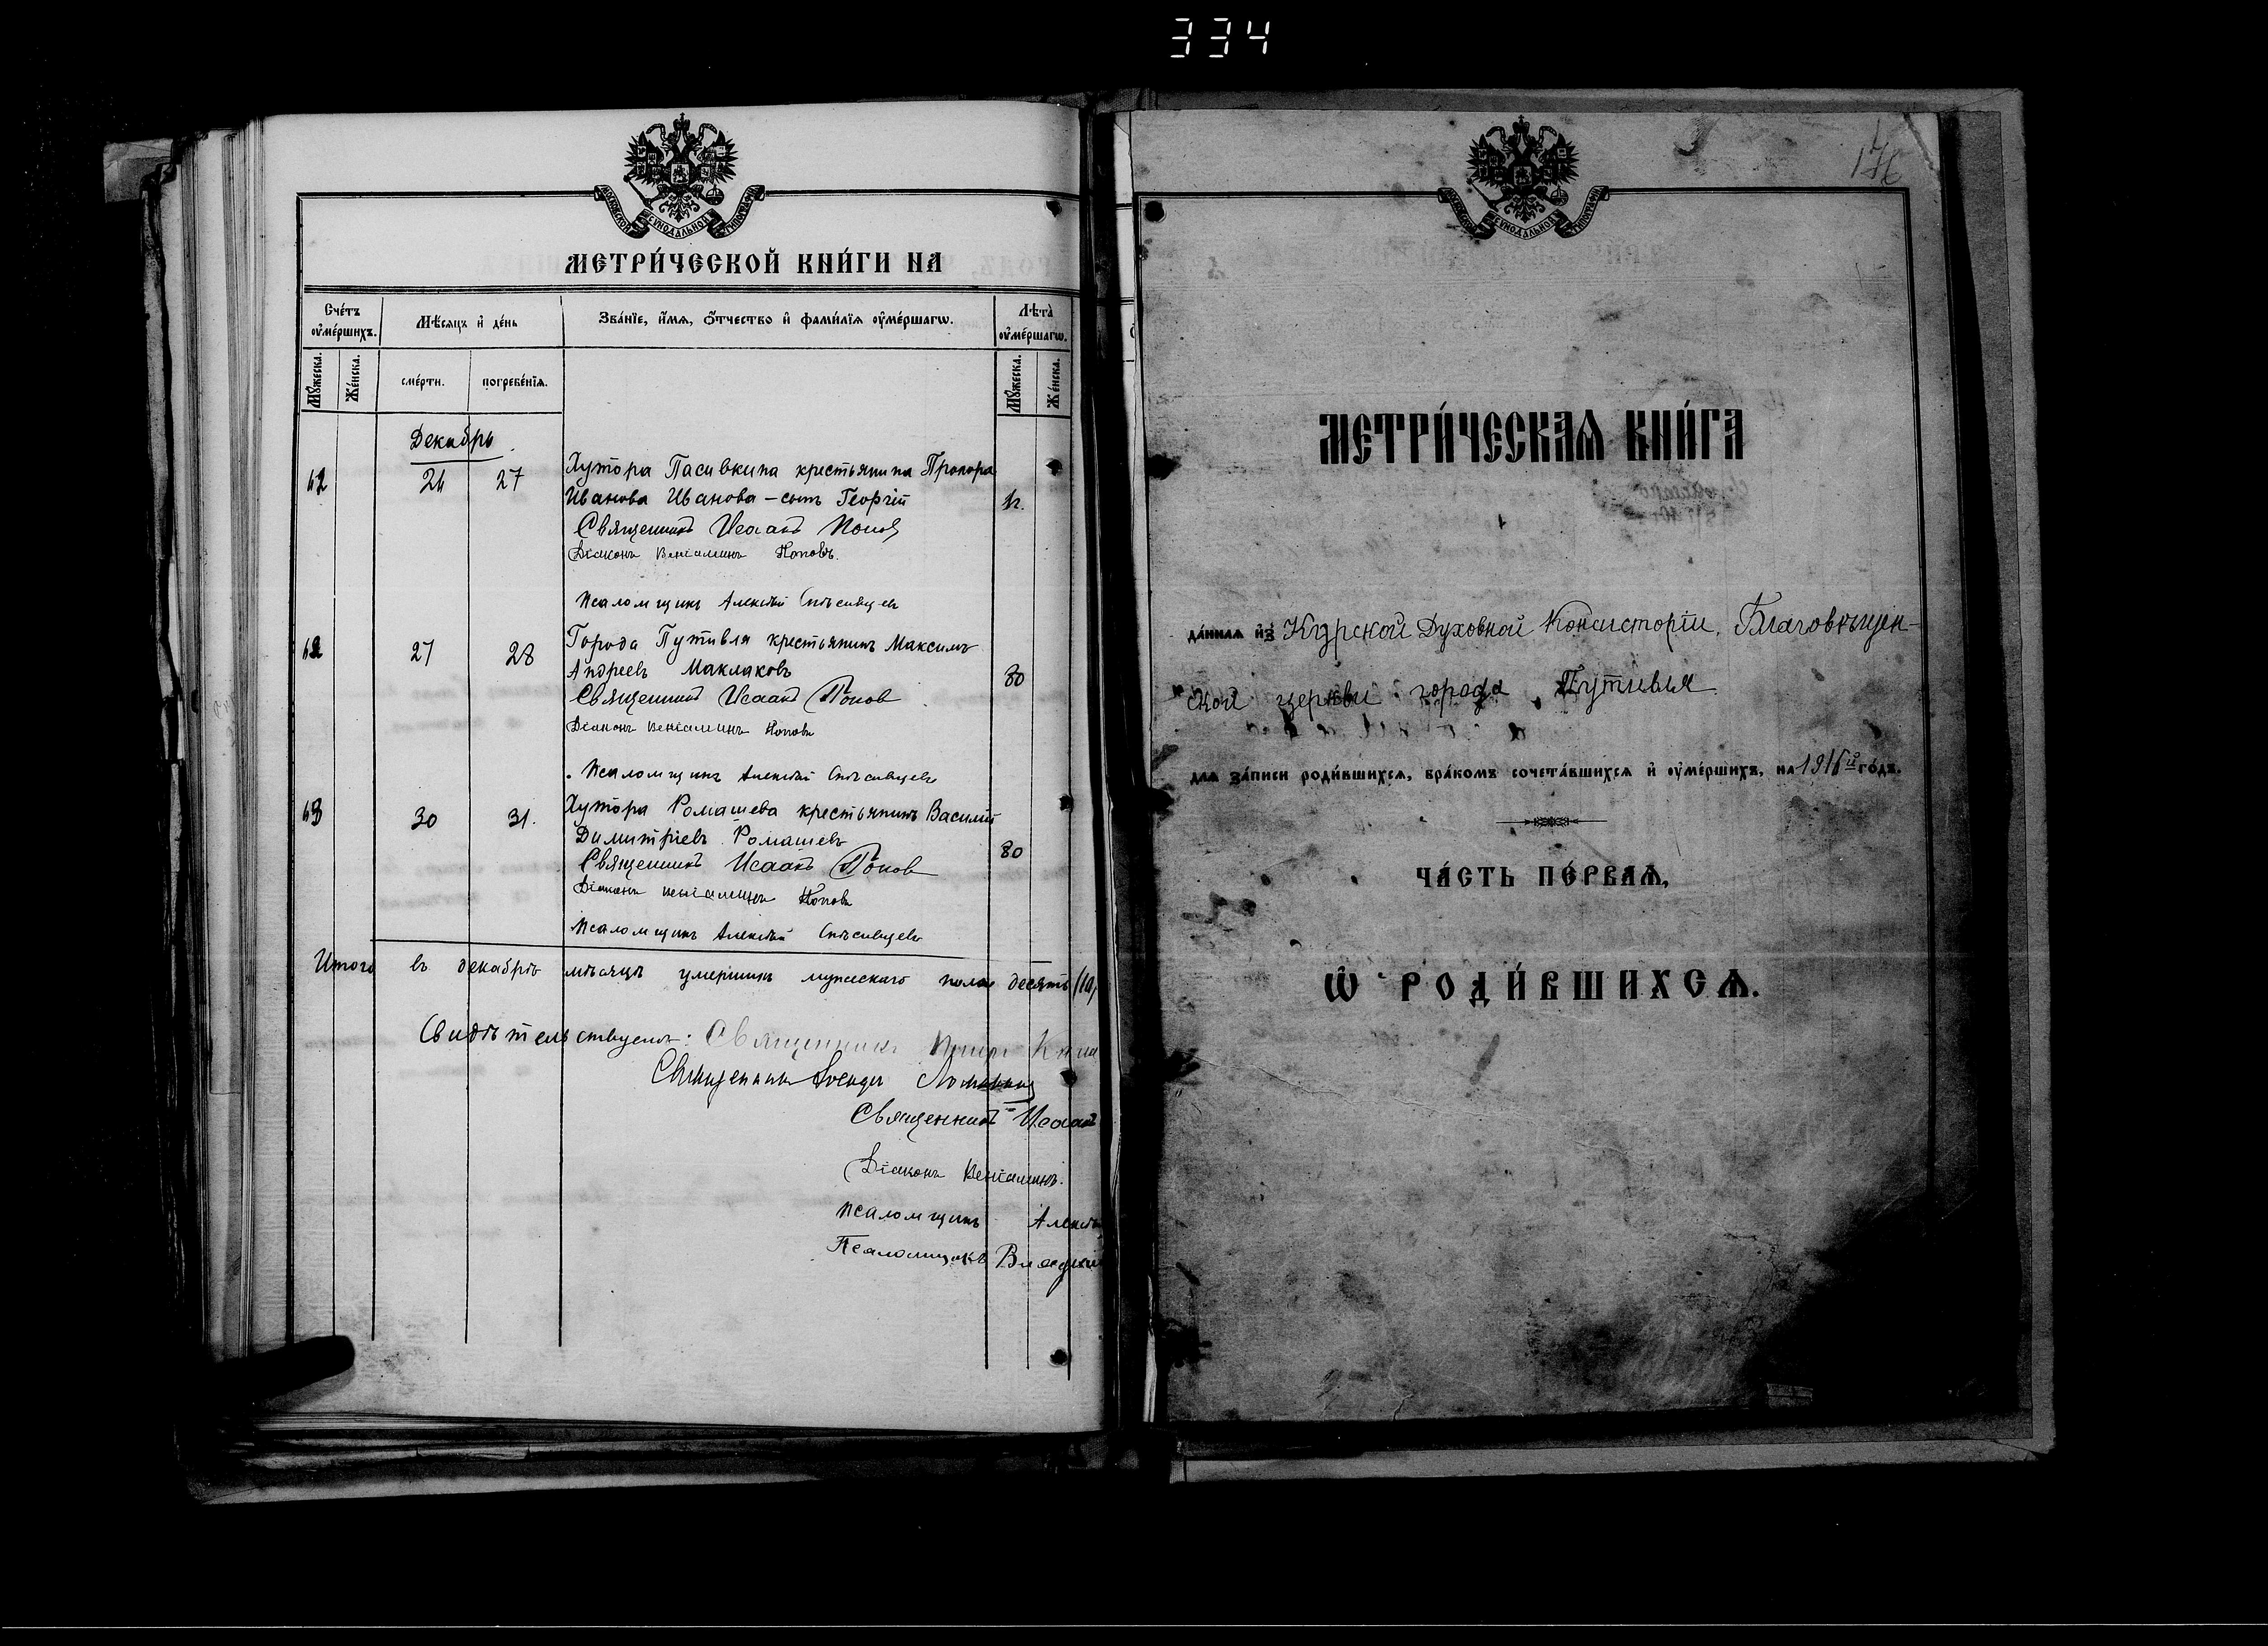 334
МОСКОВСКОЙ СѴНОДАЛЬНОЙ ТИПОГРАФІИ
МЕТРИ́ЧЕСКОЙ КНИ́ГИ НА
Сче́тъ оу҆ме́ршихъ.
Мѣ́сяцъ и҆ де́нь
Зва́нїе, и҆́мѧ, ѻ҆́тчество и҆ фами́лїѧ оу҆ме́ршагѡ.
Лѣта̀ оу҆ме́ршагѡ.
Мꙋ́жеска.
Же́нска.
сме́рти.
погребе́нїѧ.
Мꙋ́жеска.
Же́нска.
Декабрь
26 27 Хутора Пасивкина крестьянина Прохора
Иванова Иванова – сынъ Георгій
Священникъ Исаакъ Попов
Діаконъ Веніаминъ Поповъ.
Псаломщикъ Алексѣй Спѣсивцевъ
27 28 Города Путивля крестьянинъ Максимъ
Андреевъ Маклаковъ 80
Священникъ Исаакъ Попов
Діаконъ Веніаминъ Поповъ
Псаломщикъ Алексѣй Спѣсивцевъ
63 30 31. Хутора Ромашева крестьянинъ Василій
Димитріевъ Ромашевъ 80
Священникъ Исаакъ Попов
Діаконъ Веніаминъ Поповъ
Псаломщикъ Алексѣй Спѣсивцевъ
Итого въ декабрѣ мѣсяцѣ умершихъ мужескаго пола десять (10)
Свидѣтельствуемъ: Священникъ
Священникъ
Священникъ Исаакъ
Діаконъ Веніаминъ
Псаломщикъ Алексѣй
Псаломщикъ
МОСКОВСКОЙ СѴНОДАЛЬНОЙ ТИПОГРАФІИ
МЕТРИ́ЧЕСКАѦ КНИ́ГА
да́ннаѧ и҆з̾ Курской Духовной Консисторіи, Благовѣщен-
ской церкви города Путивля
длѧ за́писи роди́вшихсѧ, бра́комъ сочета́вшихсѧ и҆ оу҆ме́ршихъ, на 1916й го́дъ.
ЧА́СТЬ ПЕ́РВАѦ,
Ѡ҆ РОДИ́ВШИХСѦ.